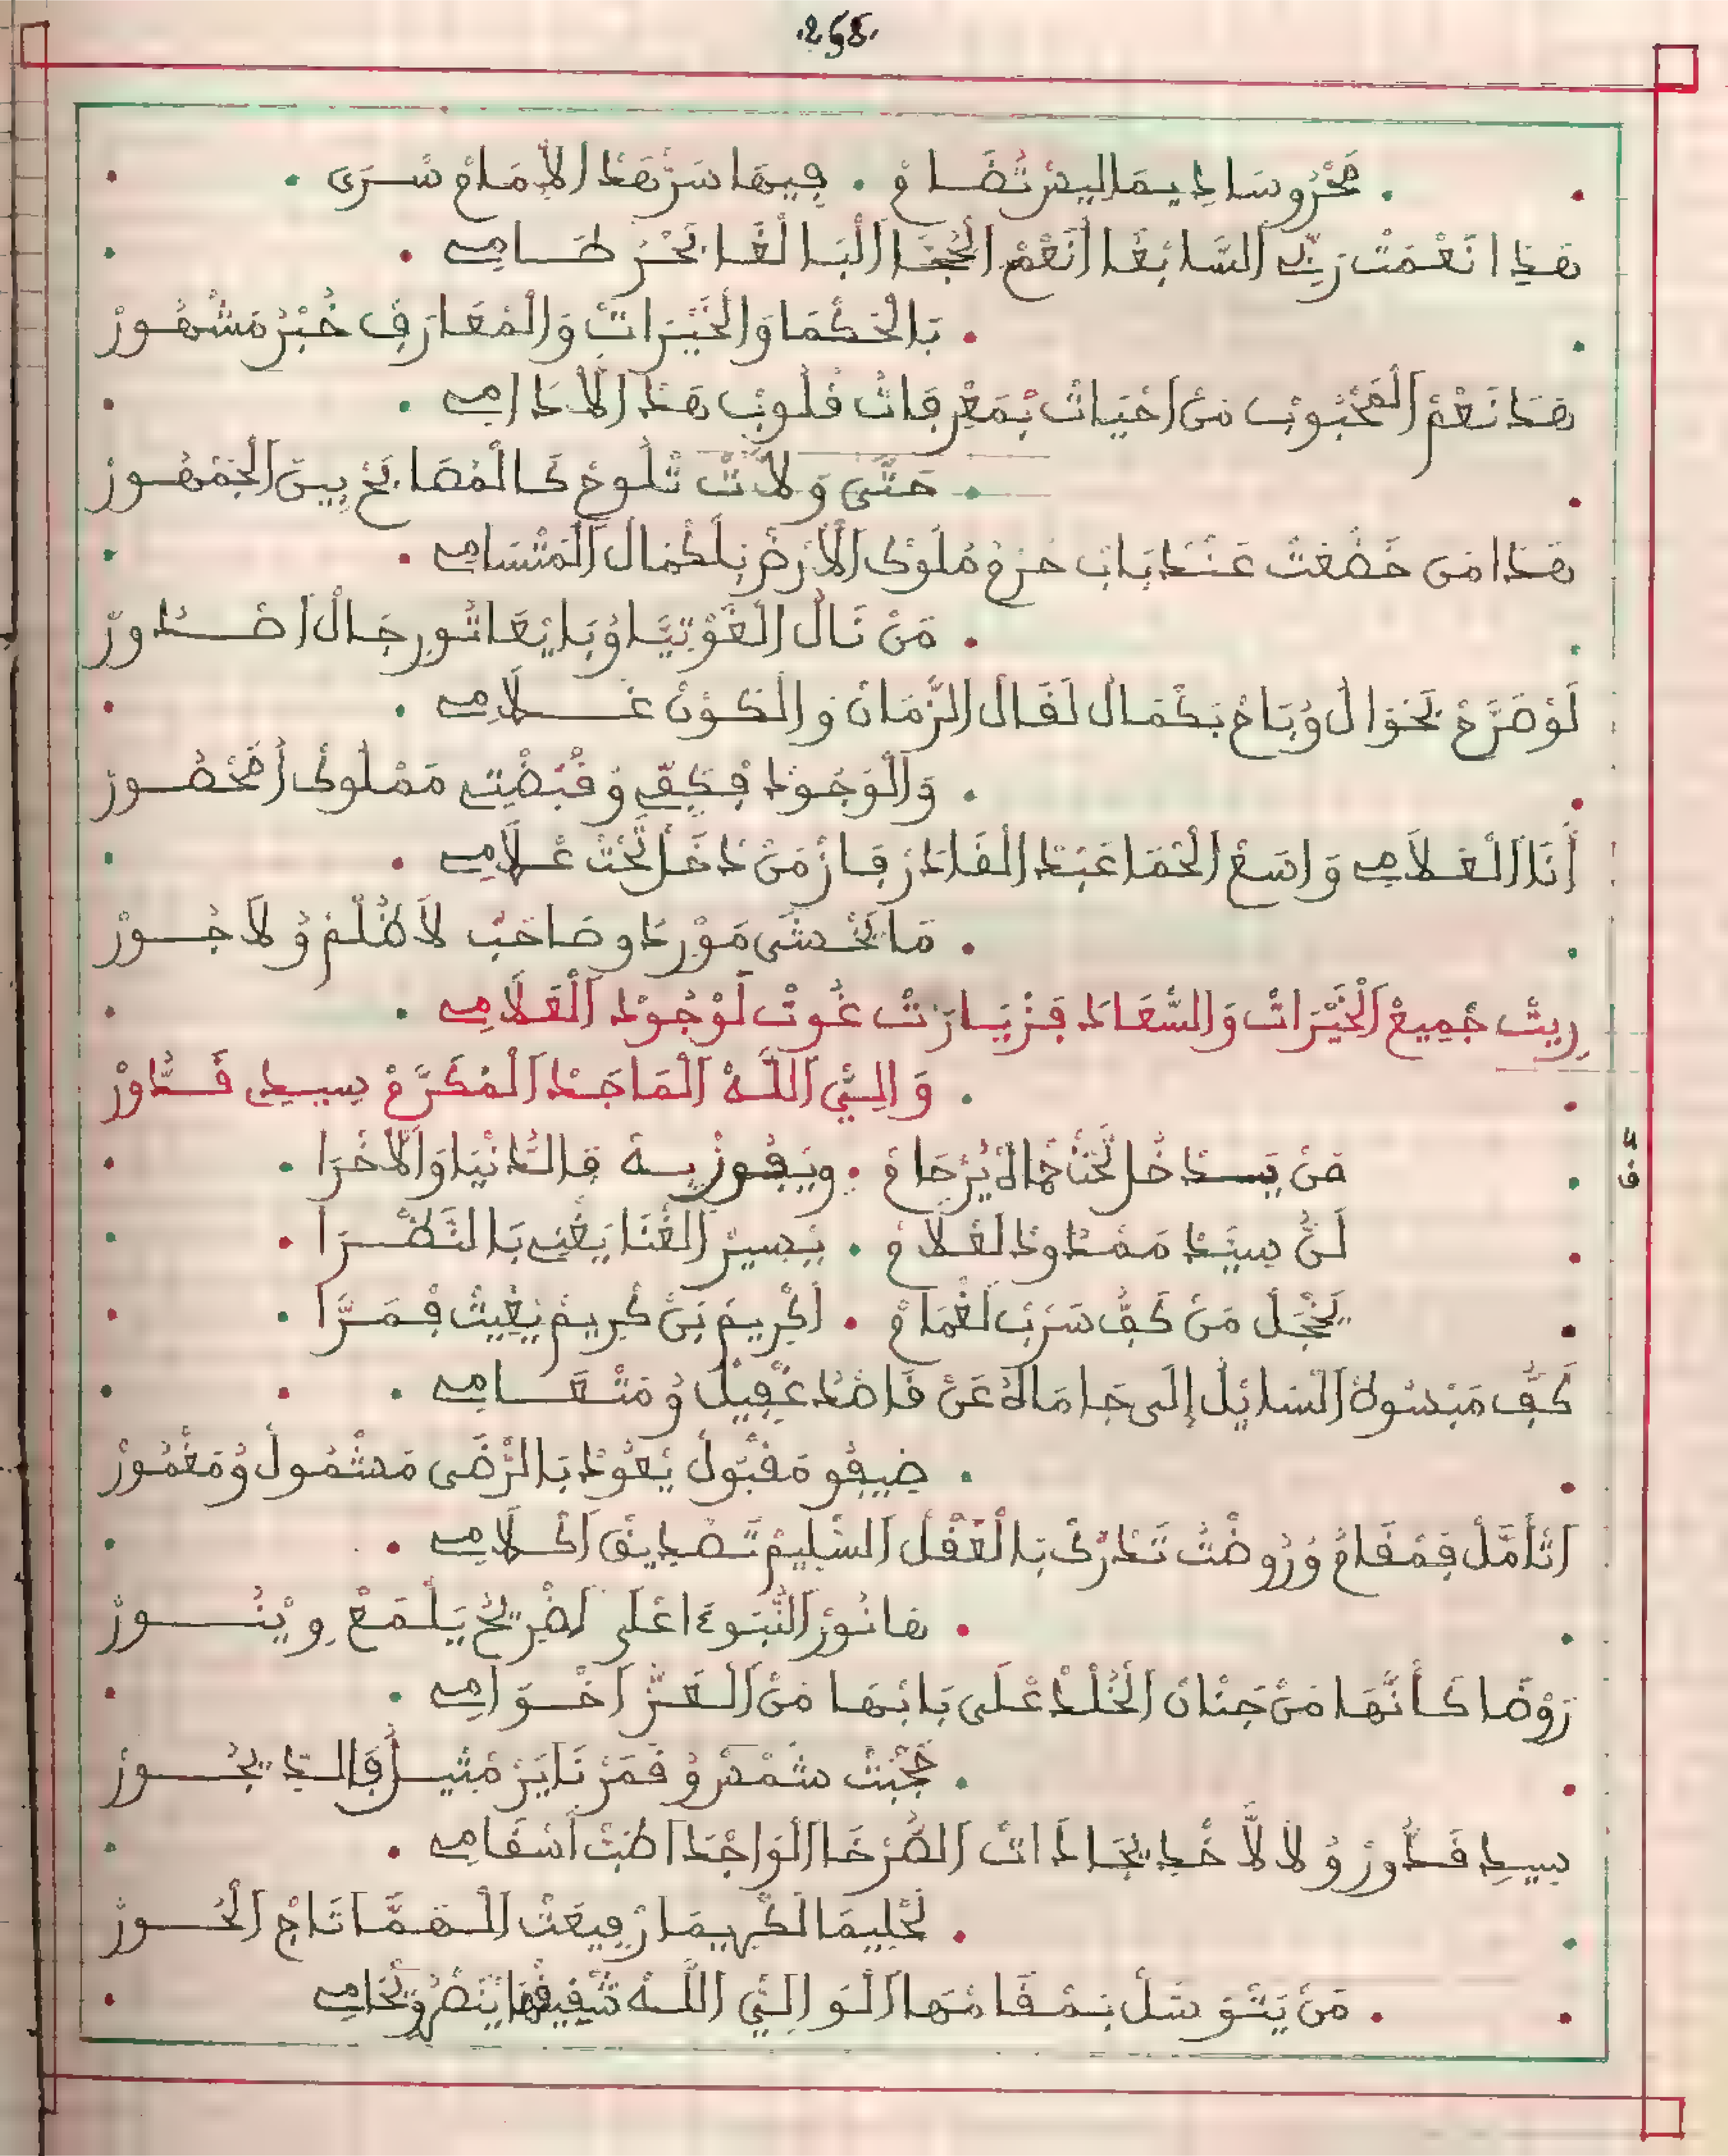 .258.
مَحْرُوسَا دِيمَا لِيسْ تُضَامْ . فِيهَا سَرّْ هَذَا الْإِمَامْ سْرَى
هَذِا نَعْمَتْ رَبِّي السَّابْغَا أَنَعْمْ الْجُنَا الْبَالْغَا بَحْرْ طَامِي
بَالْحَكْمَا وَالْخَيْرَاتْ وَالْمْعَارَفْ خُبْرُ مَشْهُورْ
هَذَا نَعْمْ الْمَحْبُوبْ مَنْ احْيَاتْ بْمَعْرِفَاتُ قْلُوبْ هَذَ الْأَدَامِي
حَتَّى وَلاَّتْ تْلُوحْ كَالْمْصَابَحْ بِينْ الْجَمْهُورْ
هَذَا مَنْ خَضْعَتْ عَنْدْ بَابْ حُرْمُ مْلُوكْ الْأَرْضْ بَلَكْمَالْ الْمَتْسَامِي
مَنْ نَالْ الْغَوْتِيَّا وُبَايْعَاتُو رِجَالْ اصْدُورْ
لَوْ صَرَّحْ بَحْوَالُ وُبَاحْ بَكْمَالُ لَقَالْ الزّْمَانْ وَالْكَوْنْ غْلَامِي
وَالْوَجُودْ فْكَفِّي وْقُبْضْتِي مَمْلُوكْ أُمَحْصُورْ
أَنَا الْعَلاَمِي وَاسَعْ الْحْمَا عَبْدْ الْقَادَرْ فَازْ مَنْ دْخَلْ تَحْتْ عْلاَمِي
مَا يَخْشَى مَوْرِدُ وصَاحْبُ لاَ ظُلْمْ وُلاَ جُورْ
رِيتْ جْمِيعْ الْخَيْرَاتْ وَالسَّعَادَ فَزْيَارَتْ غُوتْ لَوْجُودْ الْعَلاَمِي
وَالِيّْ اللَّهْ الْمَاجَدْ الْمْكَرَّمْ سِيدِي قَدُّورْ
قَدُّ
مَنْ يَدْخُلْ تَحْتْ حْمَاهْ يُرْحَامْ . وِيفُوزْ بِهْ فَالدَّنْيَا وَالْأَخْرَا
لَنُّ سِيَّدْ مَمْدُودْ لَعْلَامْ . يَسِيرْ الْغْنَا يَغْنِي بَالنَّظْرَا
يَخْجَلْ مَنْ كَفُّ سَرْبْ لَغْمَامْ . اكْرِيمْ بَنْ كْرِيمْ يْغِيثْ فْمَرَّا
كَفُّ مَبْسُوطْ السَّايْلْ إِلَى جَا مَالُهْ عَنْ قَاصْدُ عْفِيلْ وُمَتْعَامِي
ضِيفُو مَقْبُولْ يْعُودْ بَالرّْضَى مَشْمُولْ وُمَغْمُورْ
اتْأَمَّلْ فِمْقَامُ وُرُوضْتُ تَدْرَكْ بَالْعَقْلْ السّْلِيمْ تَصْدِيقْ اكْلَامِي
هَا نُورْ النُّبَوءَا اعْلَى لَضْرِيحْ يَلْمَعْ وِيْنُورْ
رَوْضَا كَأَنَّهَا مَنْ جَنَانْ الْخُلْدْ عْلَى بَابْهَا مَنْ الْعَزّْ احْوَامِي
حُجْبَتْ شَمْسْ وُقَمَرْ نَايَرْ مْثِيلُ قَالدِّ يجُورْ
سِيدِي قَدُّورْ وُلَالاَّ خْدِيجَا ذَاتْ الصَّرْخَا الْوَاجْدَا طَبّْ أَسْقَامِي
لَحْلِيمَا لَكْرِيمَا رْفِيعَتْ الْهَمَّا تَاجْ الْحُورْ
مَنْ يَتْوَسَّلْ بَمْقَامْهَا الْوَالِيّْ اللَّهْ شْقِيقْهَا يَنْصْرُ وِتْحَامِي